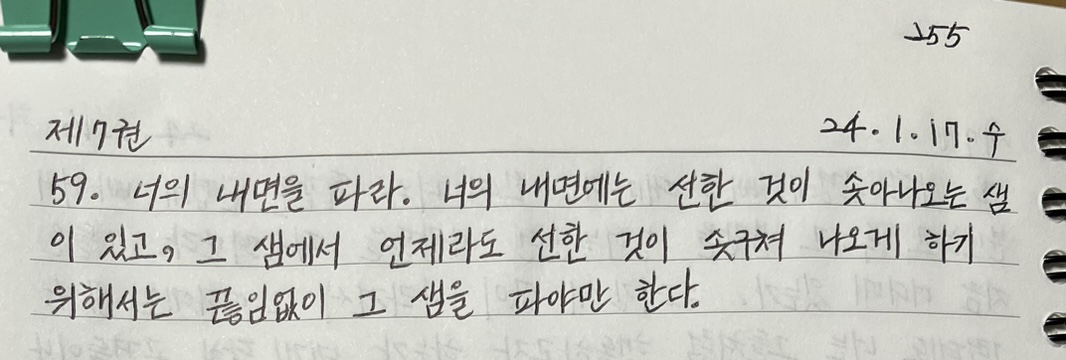 255
제7권 24.1.17.수
59. 너의 내면을 파라. 너의 내면에는 선한 것이 솟아나오는 샘
이 있고, 그 샘에서 언제라도 선한 것이 솟구쳐 나오게 하기
위해서는 끊임없이 그 샘을 파야만 한다.